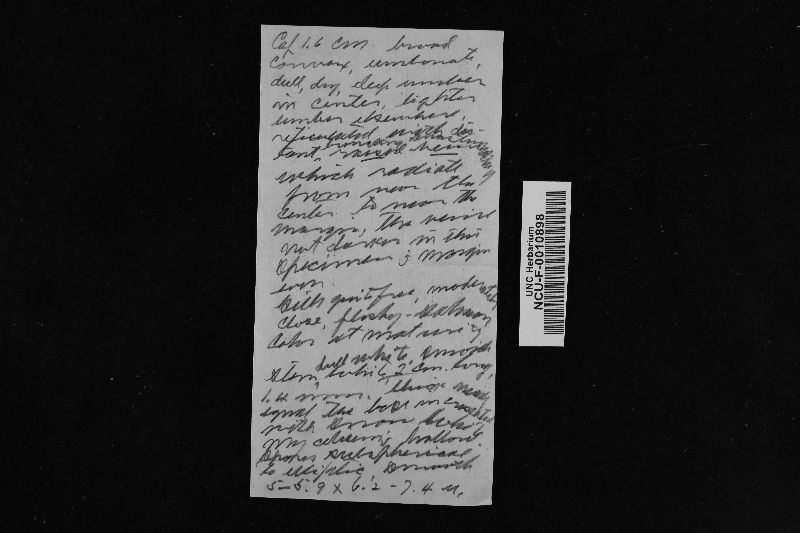 Cap 1.6 cm. broad
convex, umbonate,
dull, dry, deep umber
in center, lighter
umber elsewhere,
reticulated with dis-
tant, raised veins
which radiate
from near the
center to near the
margin, the veins
not darker in this
specimen; margin
even.
Gills quite free, moderately
close, fleshy-salmon
color at maturity
Stem dull white, smooth
2 cm. long,
1.4 mm. thick, nearly
equal the base incrusted
with snow white
mycelium, hollow.
Spores subspherical
to elliptic, smooth
5-5.9 x 6.2-7.4 u.
UNC Herbarium
NCU-F-0010898